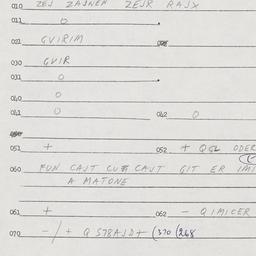 010 ZEJ ZAJNEN ZEJR RAJX
011 O
021 GVIRIM
030 GVIR
031 O
040 O
041 O 042 O
051 + 052 + QGL ODER
060 FUN CAJT CU CAJT GIT ER IMI
A MATONE
061 + 062 - QIMICER
070 -/+ Q578AJD+ (370 (268